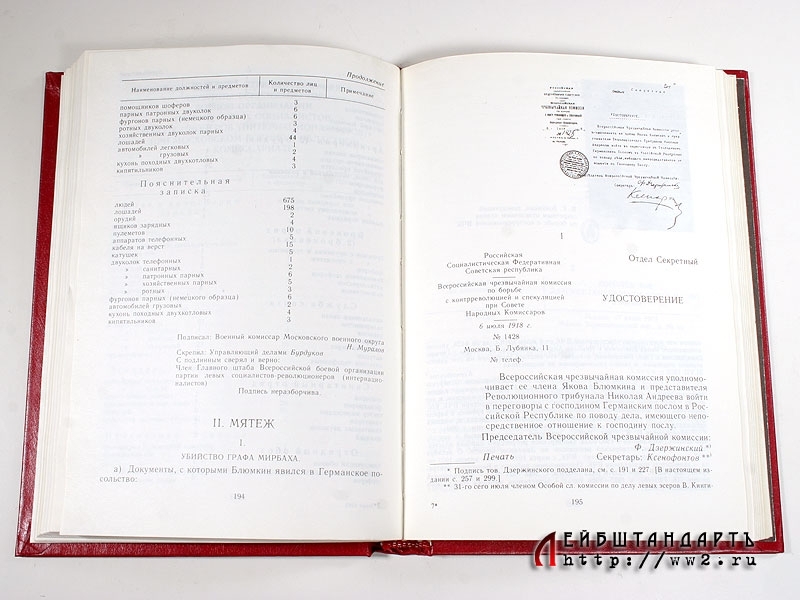 Продолжение
Наименование должностей и предметов
Количество лиц
и предметов
Примечание
помощников шоферов 3
парных патронных двуколок 6
фургонов парных (немецкого образца) 6
ротных двуколок 3
хозяйственных двуколок парных 4
лошадей 44
автомобилей легковых 1
» грузовых 2
кухонь походных двухкотловых 4
кипятильников 3
Пояснительная
записка
людей 675
лошадей 198
орудий 2
ящиков зарядных 4
пулеметов 10
аппаратов телефонных 5
кабеля на верст 15
катушек 5
двуколок телефонных 1
» санитарных 2
» патронных парных 6
» хозяйственных парных 5
» ротных 3
фургонов парных (немецкого образца) 6
автомобилей грузовых 2
кухонь походных двухкотловых 4
кипятильников 3
Подписал: Военный комиссар Московского военного округа
Н. Муралов
Скрепил: Управляющий делами Бурдуков
С подлинным сверил и верно:
Член Главного штаба Всероссийской боевой организации
партии левых социалистов-революционеров (интернацио-
налистов)
Подпись неразборчива.
II. МЯТЕЖ
I.
УБИЙСТВО ГРАФА МИРБАХА.
а) Документы, с которыми Блюмкин явился в Германское по-
сольство:
194
1
Российская
Социалистическая Федеративная
Советская республика
Отдел Секретный
Всероссийская чрезвычайная комиссия
по борьбе
с контрреволюцией и спекуляцией
при Совете
Народных Комиссаров
УДОСТОВЕРЕНИЕ
6 июля 1918 г.
№ 1428
Москва, Б. Лубянка, 11
№ телеф
Всероссийская чрезвычайная комиссия уполномо-
чивает ее члена Якова Блюмкина и представителя
Революционного трибунала Николая Андреева войти
в переговоры с господином Германским послом в Рос-
сийской Республике по поводу дела, имеющего непо-
средственное отношение к господину послу.
Председатель Всероссийской чрезвычайной комиссии:
Ф. Дзержинский *)
Печать Секретарь: Ксенофонтов **)
* Подпись тов. Дзержинского подделана, см. с. 191 и 227. [В настоящем из-
дании с. 257 и 299.]
** 31-го сего июля членом Особой сл. комиссии по делу левых эсеров В. Кинги-
7*
195
ЛЕЙБШТАНДАРТЪ
http://ww2.ru